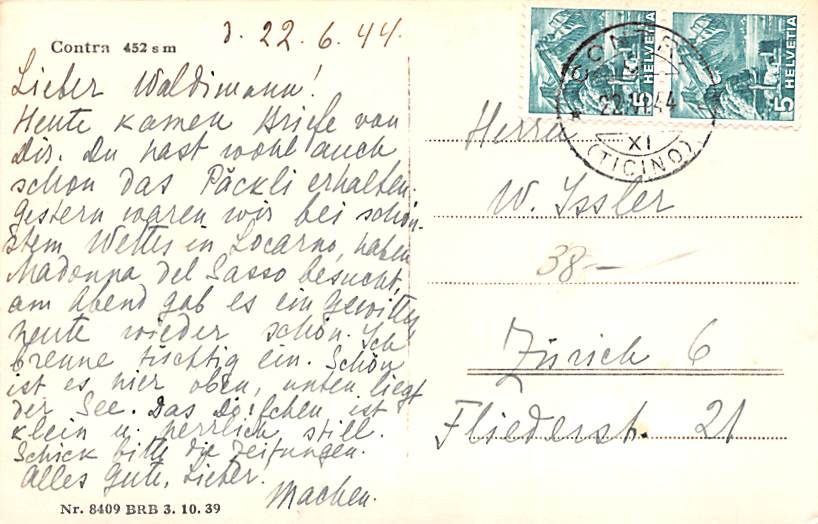 Contra 452 s m
d. 22.6.44
Lieber Waldimann!
Heute kamen Briefe von
Dir. Du hast wohl auch
schon das Päckli erhalten.
Gestern waren wir bei schön-
stem Wetter in Locarno, haben
Madonna del Sasso besucht,
am Abend gab es ein Gewitter
heute wieder schön. Ich
brenne tüchtig ein. Schön
ist es hier oben, unten liegt
der See. Das Dörfchen ist
klein u. herrlich still.
Schick bitte die Zeitungen.
Alles Gute, Lieber.
Machen.
Nr. 8409 BRB 3. 10. 39
5 HELVETIA
5 HELVETIA
CONTRA
22.VI.44
XI
(TICINO)
Herrn
W. Issler
38–
Zürich 6
Fliederstr. 21